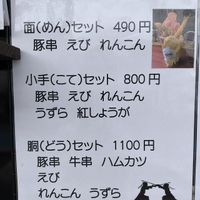 面(めん)セット 490円
豚串 えび れんこん
小手(こて)セット 800円
豚串 えび れんこん
うずら 紅しょうが
胴(どう)セット 1100円
豚串 牛串 ハムカツ
えび
れんこん うずら